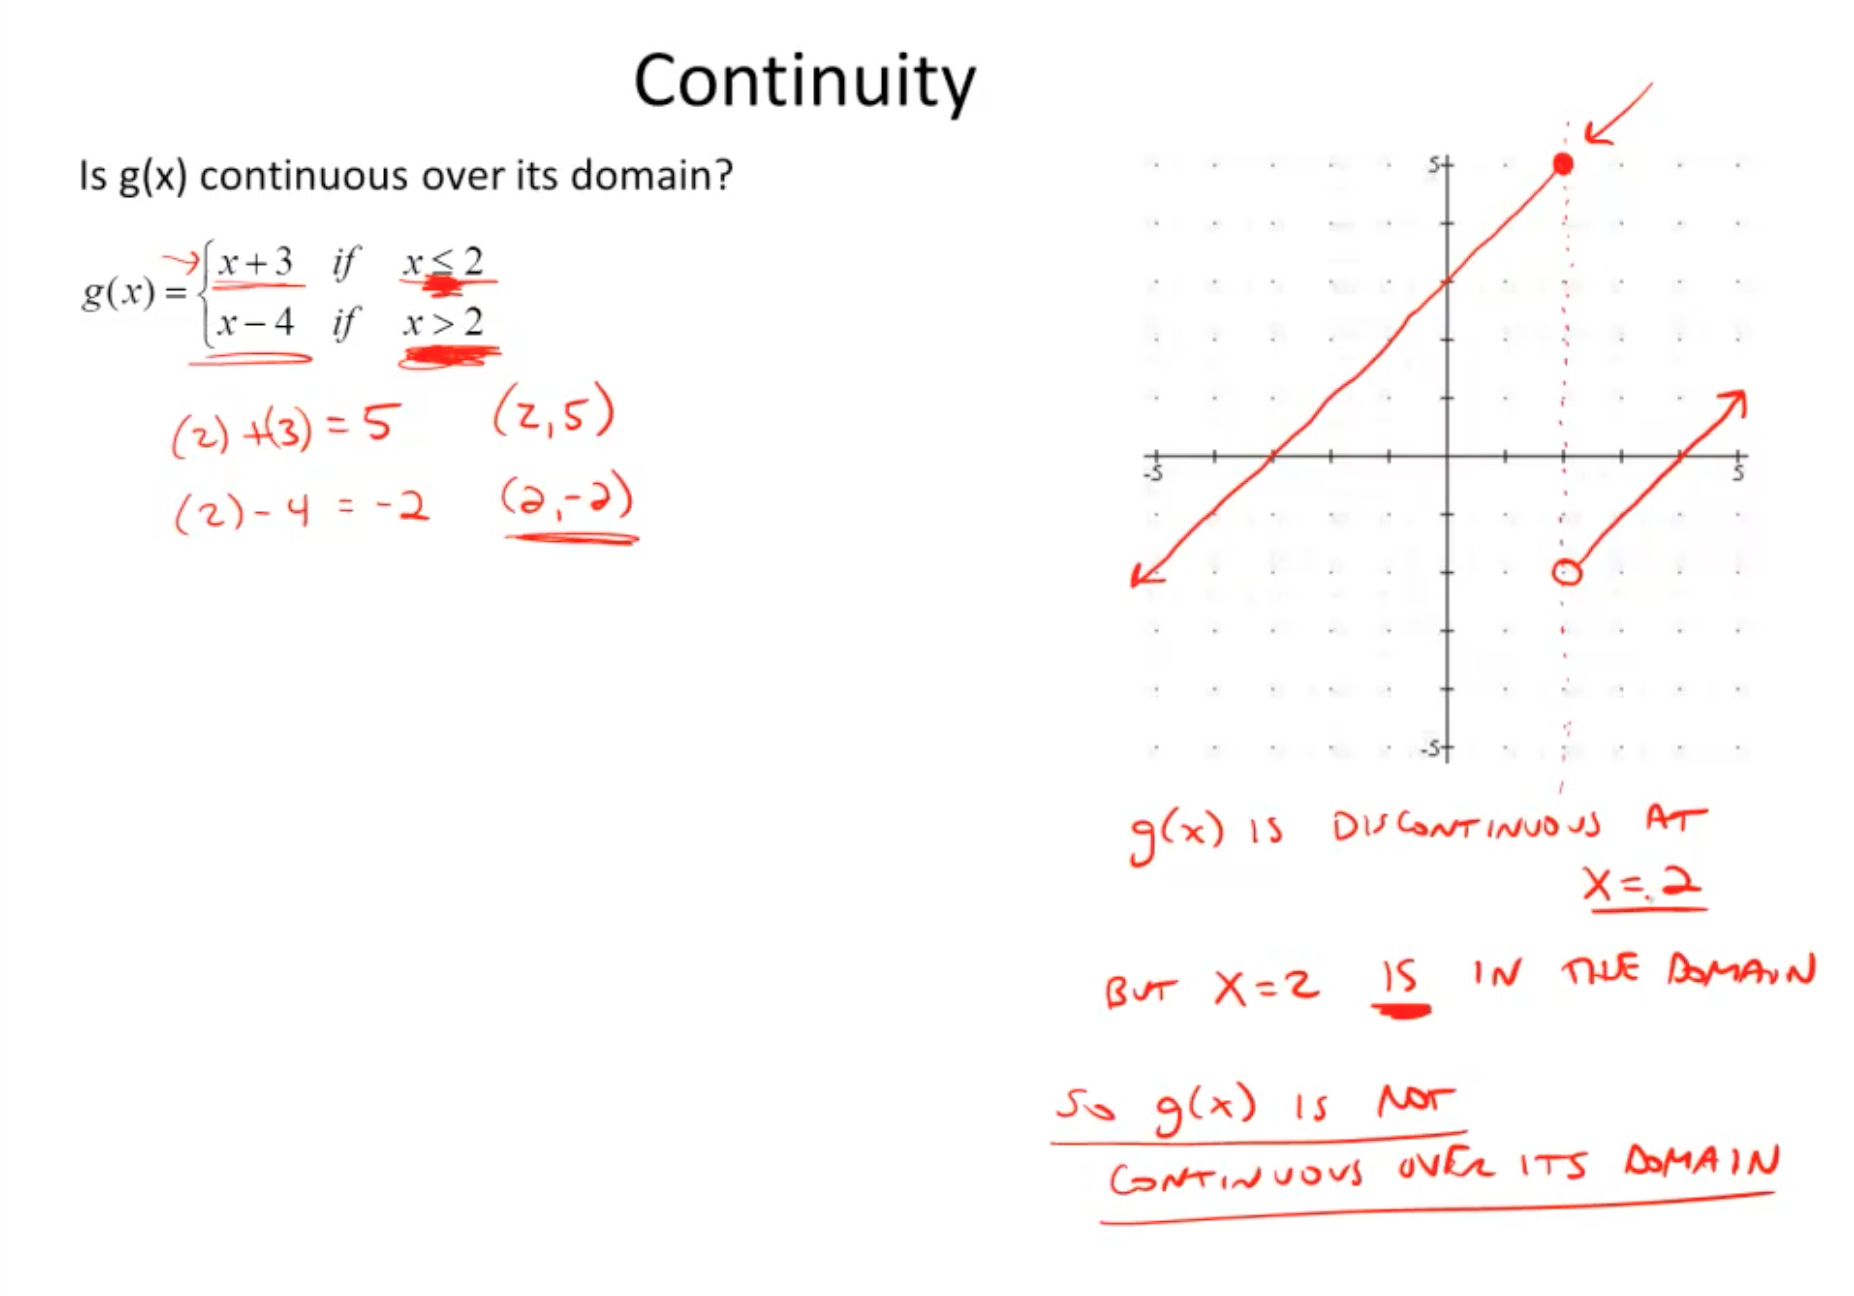 Continuity
Is g(x) continuous over its domain?
g(x) = { x + 3 if x ≤ 2
x − 4 if x > 2
(2) +(3) = 5 (2,5)
(2) - 4 = -2 (2,-2)
5
-5 5
-5
g(x) IS DISCONTINUOUS AT
X = 2
BUT X=2 IS IN THE DOMAIN
SO g(x) IS NOT
CONTINUOUS OVER ITS DOMAIN